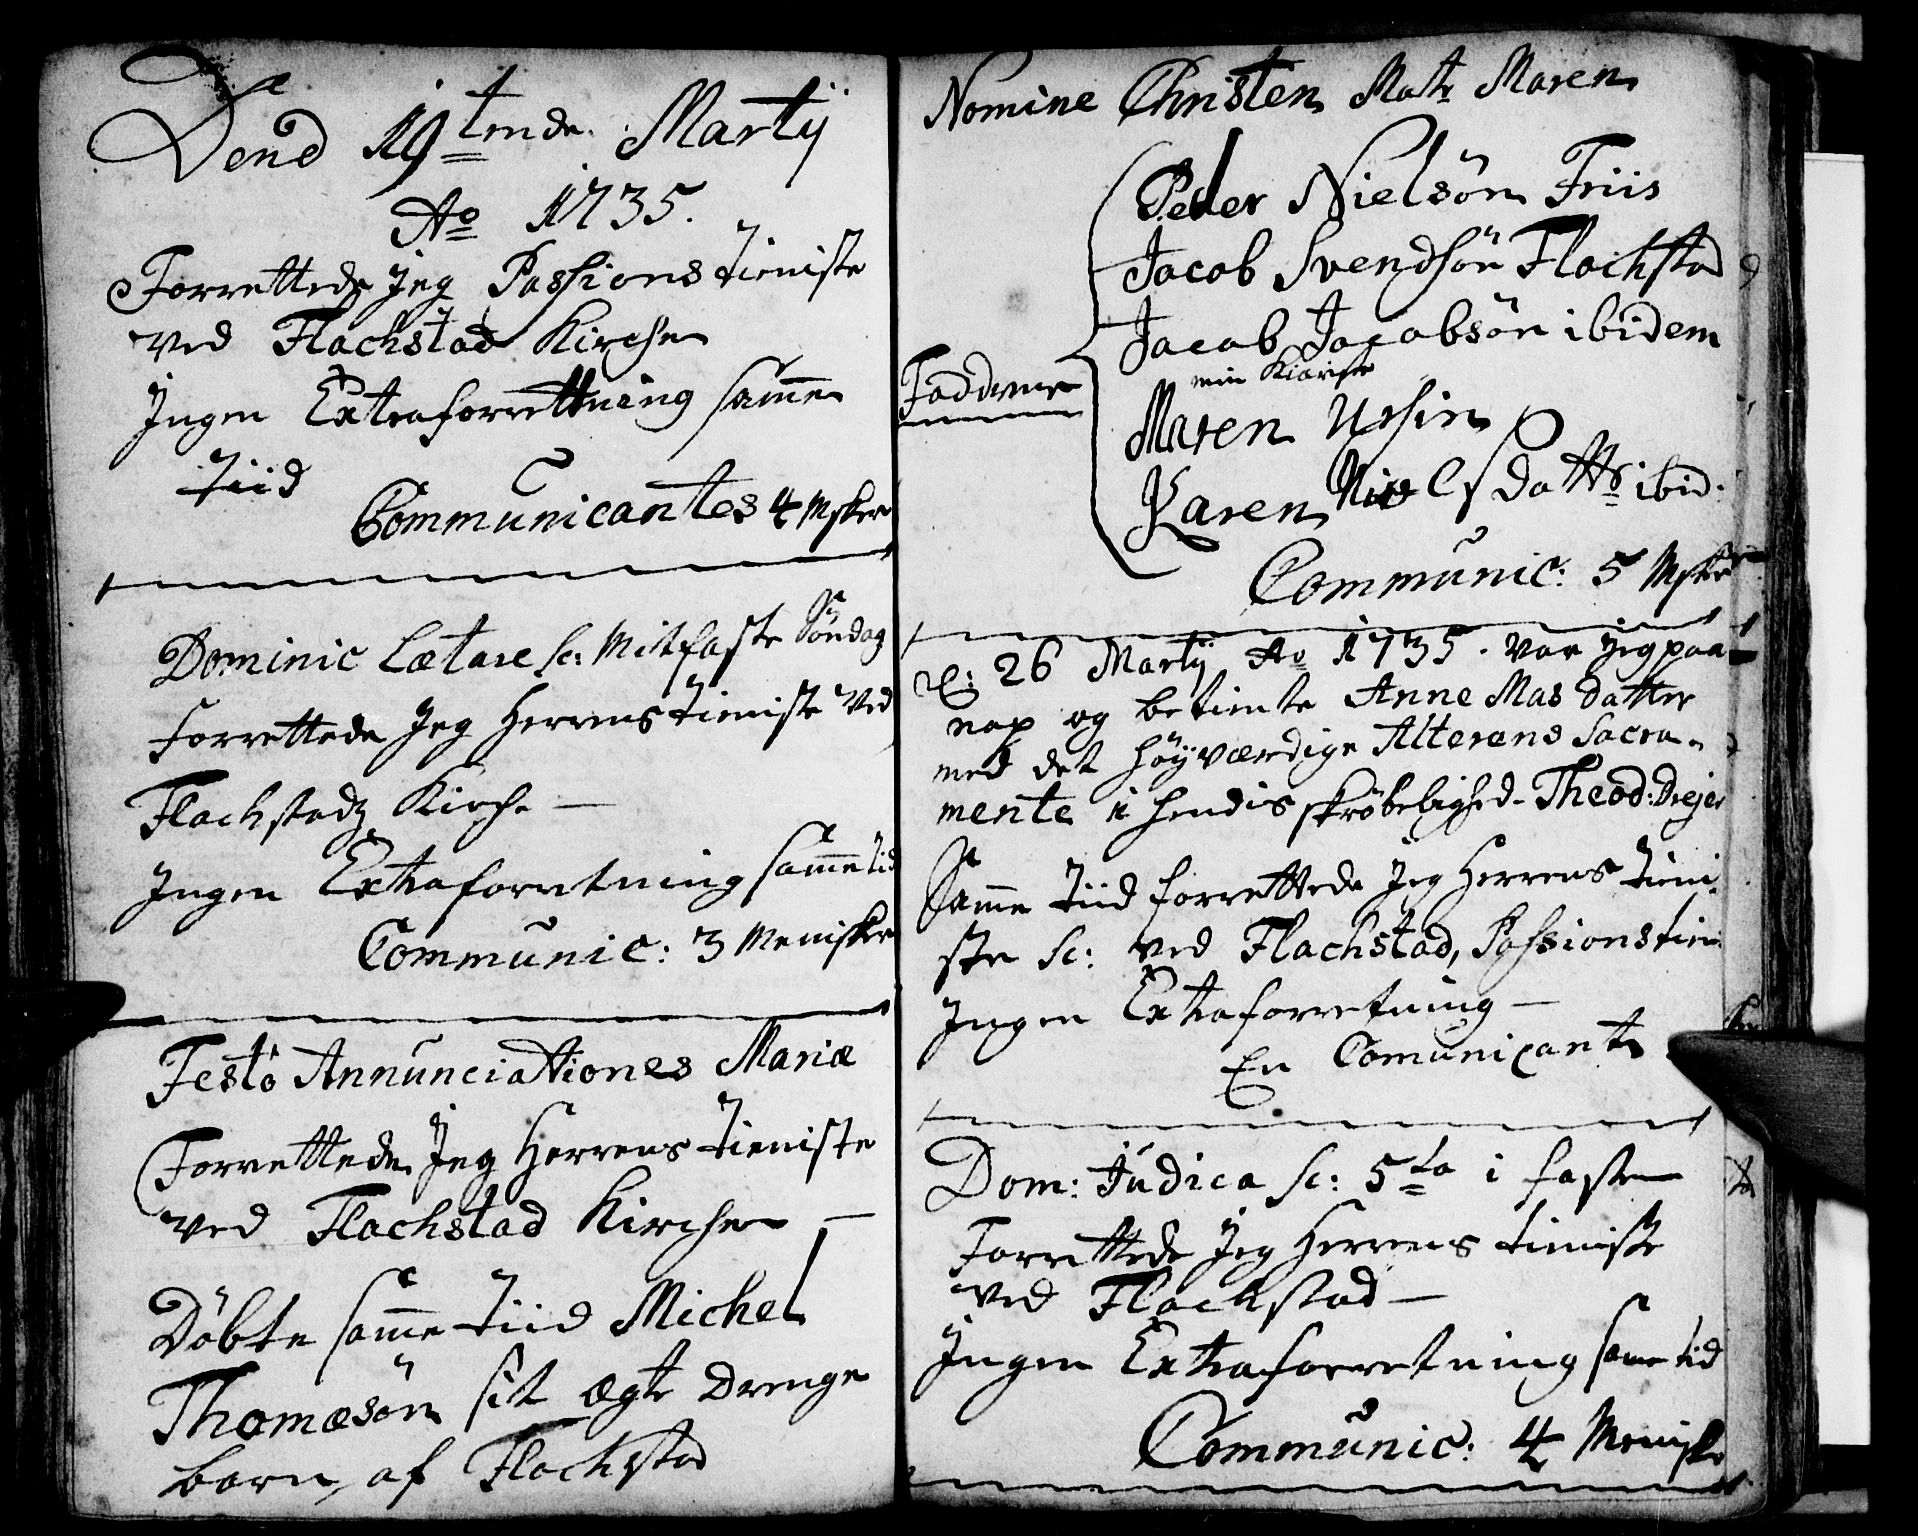 Dend 19tende Martij
Ao 1735.
Forrettede Jeg Passions tieniste
ved Flachstad Kirche
Ingen Extraforrettning samme
tiid
Communicantes 4 Msker
Dominic Lætare sc: Mitfaste Søndag
Forrettede Jeg Herrens tieniste ved
Flachstadz Kirche —
Ingen Extraforretning samme tid
Communic: 3 Menisker
Festo Annunciationes Mariæ
Forrettede Jeg Herrens tieniste
ved Flachstad Kirche —
Döbte samme tiid Michel
Thomæsön sit ægte Drenge
barn af Flachstad
Nomine Christen Matr Maren
Peder Nielsön Friis
Jacob Svendsön Flachstad
Jacob Jacobsön ibidem
min Kiæriste
Fadderne
Maren Ursin
Karen Nielsdattr ibid:
Communic: 5 Msker
D: 26 Martij Ao 1735. var jeg paa
nap og betiente Anne Mas datter
med det höyværdige Alterens Sacra-
mente i hendis skröbelighed. Theod: Drejer
Samme tiid forrettede Jeg Herrens tieni-
ste sc: ved Flachstad, Passionstien:
Ingen Extraforretning —
En Comunicant
Dom: Judica sc: 5ta i faste
Forrettede Jeg Herrens tieniste
ved Flachstad —
Ingen Extraforretning same tid
Communic: 4 Meniske